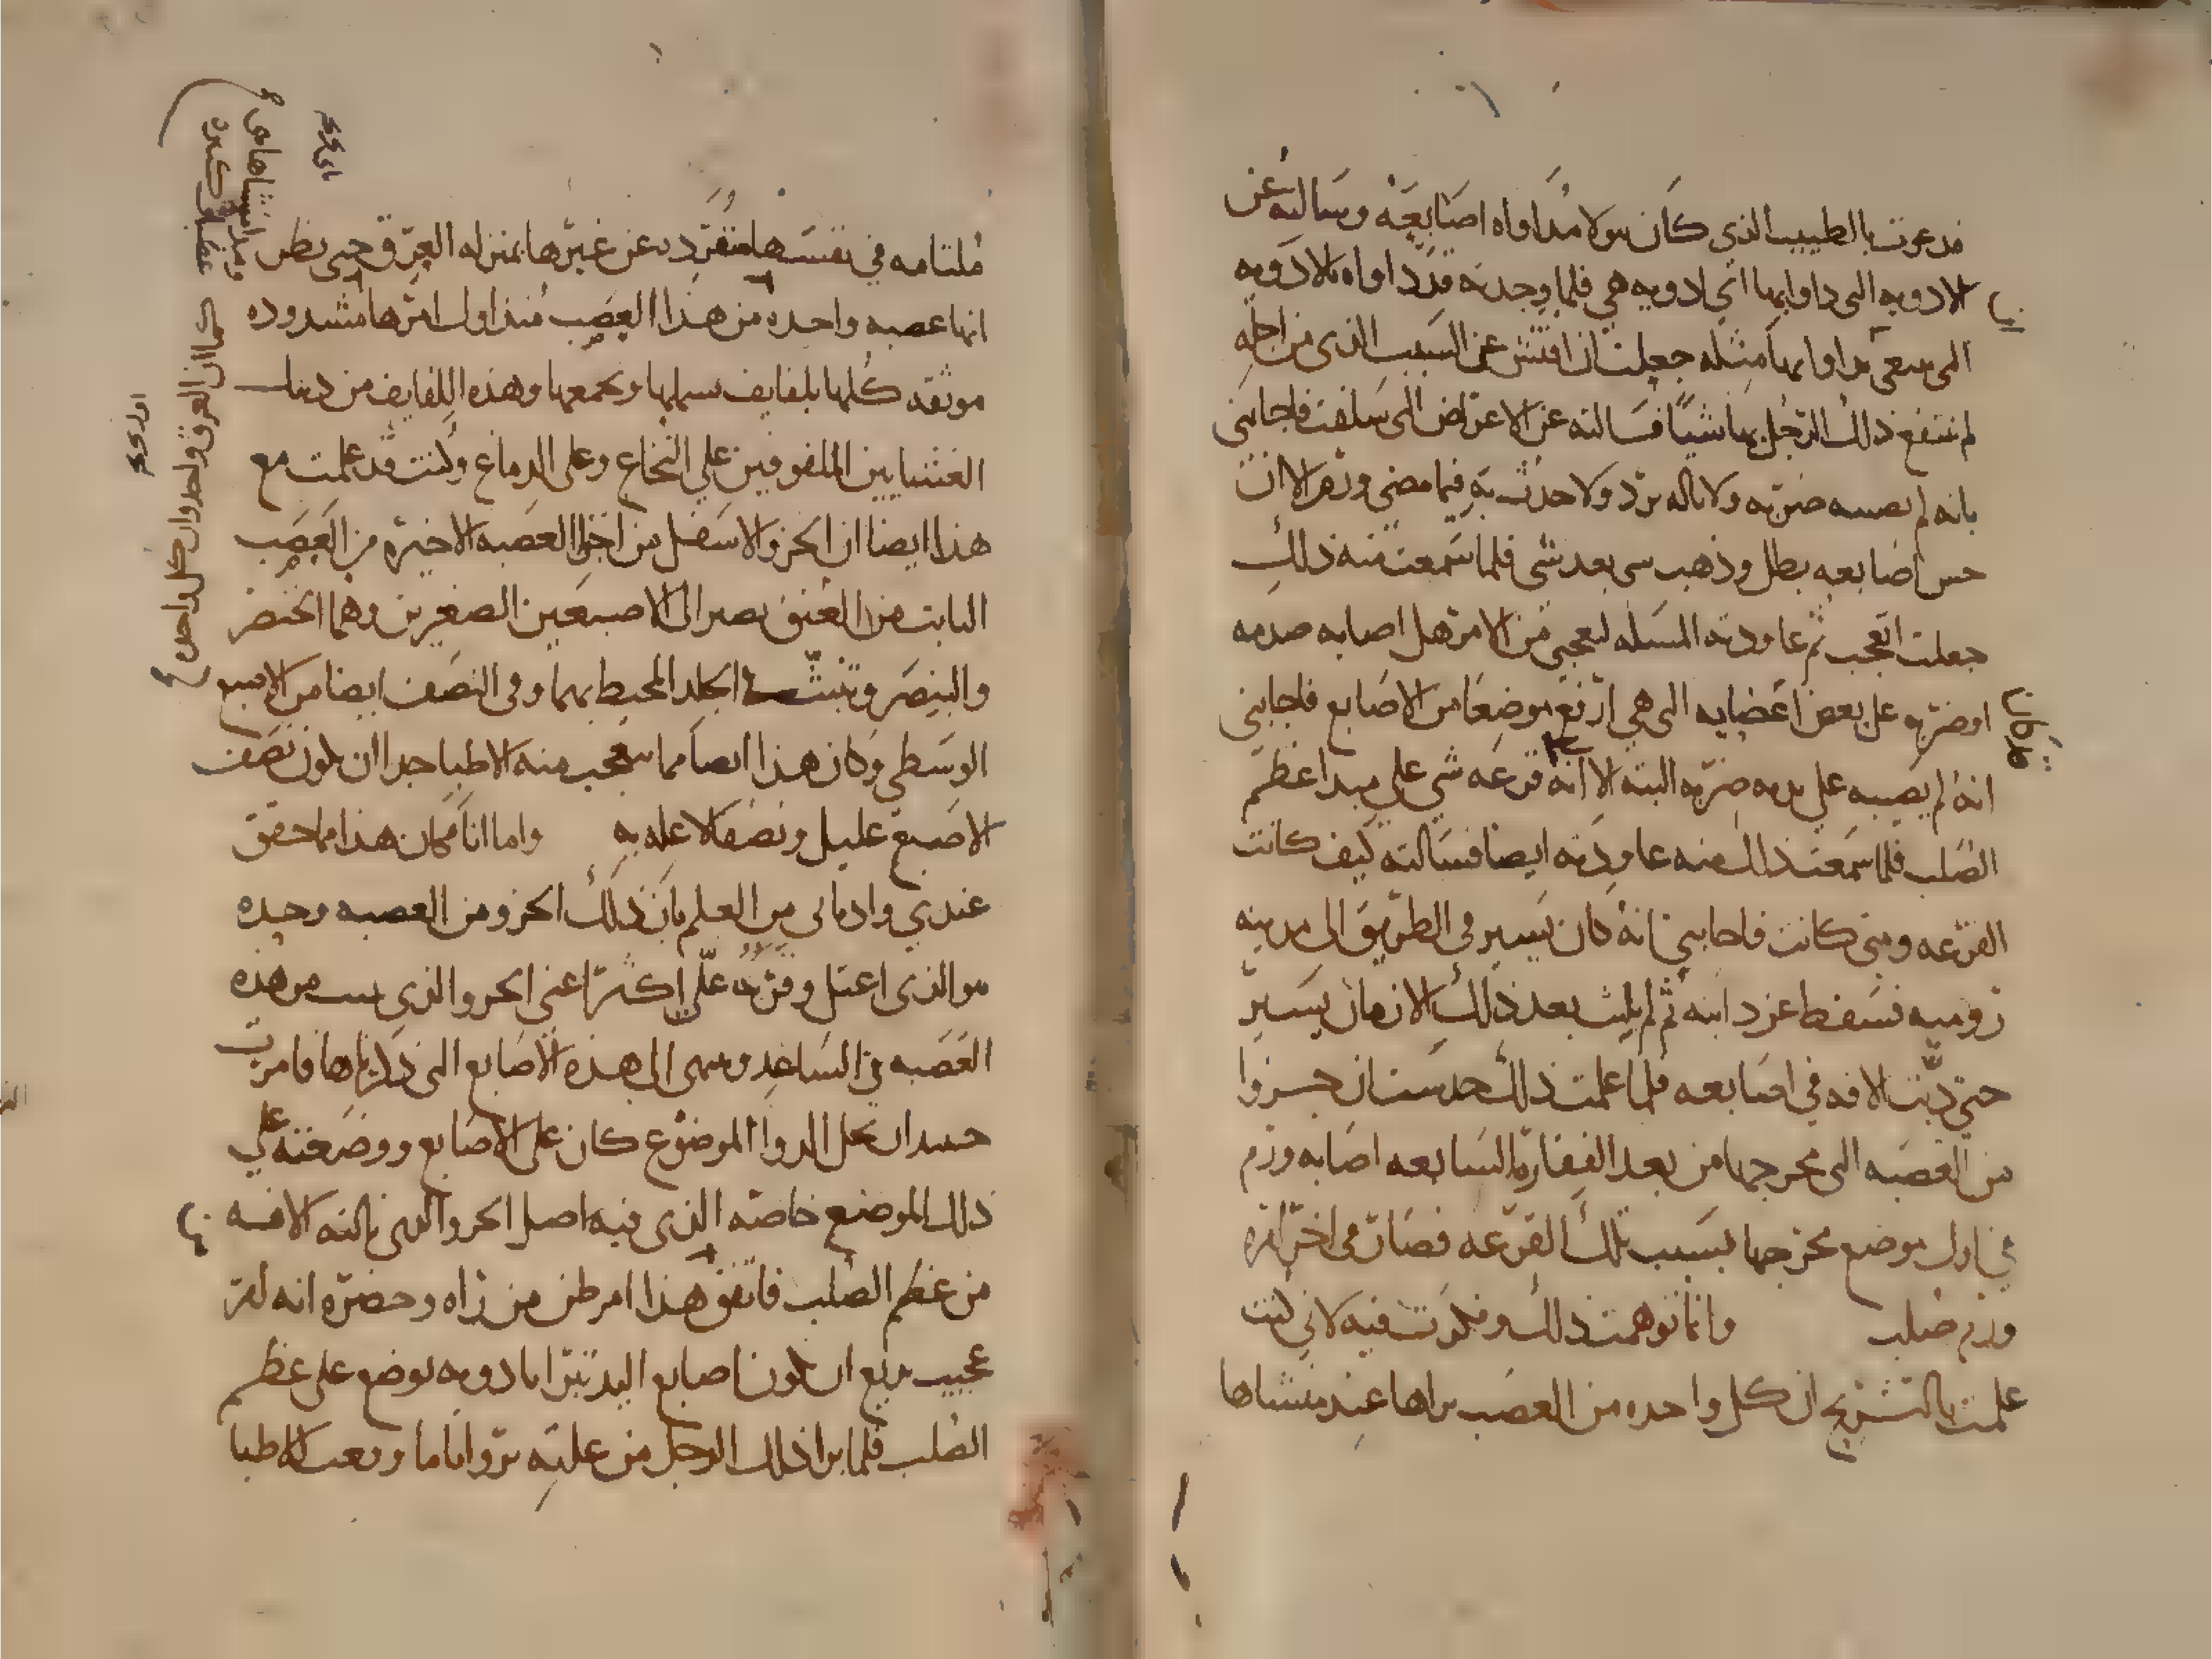 فدعوت بالطبيب الذي كان تولا مداواه اصابعه وسالته عن
الادويه التي داواها اي ادويه هي فلما وجدته قد داواه بالادويه
التي ينبغي يداوا بها مثله جعلت ان افتش عن السبب الذي من اجله
لم ينتفع ذلك الرجل بها شيا فسالته عن الاعراض التي سلفت فاجابني
بانه لم يصبه ضربه ولا ناله برد ولا حدث به فيما مضي ورم الا ان
حس اصابعه بطل وذهب شي بعد شي فلما سمعت منه ذلك
جعلت اتعجب ثم عاودته المسله لتعجبي من الامر هل اصابه صدمه
او ضربه علي بعض اعضايه التي هي ارفع موضعا من الاصابع فاجابني
انه لم يصيبه علي يديه ضربه البته الا انه قرعه شي علي مبدا عظم
الصلب فلما سمعت ذلك منه عاودته ايضا فسالته كيف كانت
القرعه ومتي كانت فاجابني انه كان يسير في الطريق الي مدينه
روميه فسقط عن دابته ثم لم يلبث بعد ذلك الا زمان يسير
حتي دبت الافه في اصابعه فلما علمت ذلك حدست ان جزوا
من العصبه التي مخرجها من بعد الفقاره السابعه اصابه ورم
في اول موضع مخرجها بسبب تلك القرعه فصار في اخر امره
ورم صلب وانا توهمت ذلك وفكرت فيه لاني كنت
علمت بالتشريح ان كل واحده من العصب تراها عند منشاها
ملتامه في نفسها منفرده عن غيرها بمنزله العرق حتي يظن
انها عصبه واحده من هذا العصب منذ اول امرها مشدوده
موثقه كلها بلفايف تشملها وتجمعها وهذه اللفايف من دينك
الغشايين الملفوفين علي النخاع وعلي الدماغ وكنت قد علمت مع
هذا ايضا ان الجزو الاسفل من اجزا العصبه الاخيره من العصب
النابت من العنق يصير الي الاصبعين الصغيرين وهما الخنصر
والبنصر وينبث في الجلد المحيط بهما وفي النصف ايضا من الاصبع
الوسطي وكان هذا ايضا مما يتعجب منه الاطبا جدا ان يكون نصف
الاصبع عليل ونصفه لا عله به واما انا فكان هذا مما حقق
عندي وادماني من العلم بان ذلك الجزو من العصبه وحده
هو الذي اعتل اعني الجزو الذي من هذه
العصبه في الساعد وينتهي الي هذه الاصابع التي ذكرناها فامرت
حينيذ ان يحل الدوا الموضوع كان علي الاصابع ووضعته علي
ذلك الموضع خاصه الذي فيه اصل الجزو الذي نالته الافه
من عظم الصلب فاتفق هذا امر ظن من راه وحضره انه امر
عجيب بديع ان تكون اصابع اليد تبرا بادويه توضع علي عظم
الصلب فلما برا ذلك الرجل من علته بروا تاما وقعت للاطبا
كما ان العرق واحد وان كل واحده